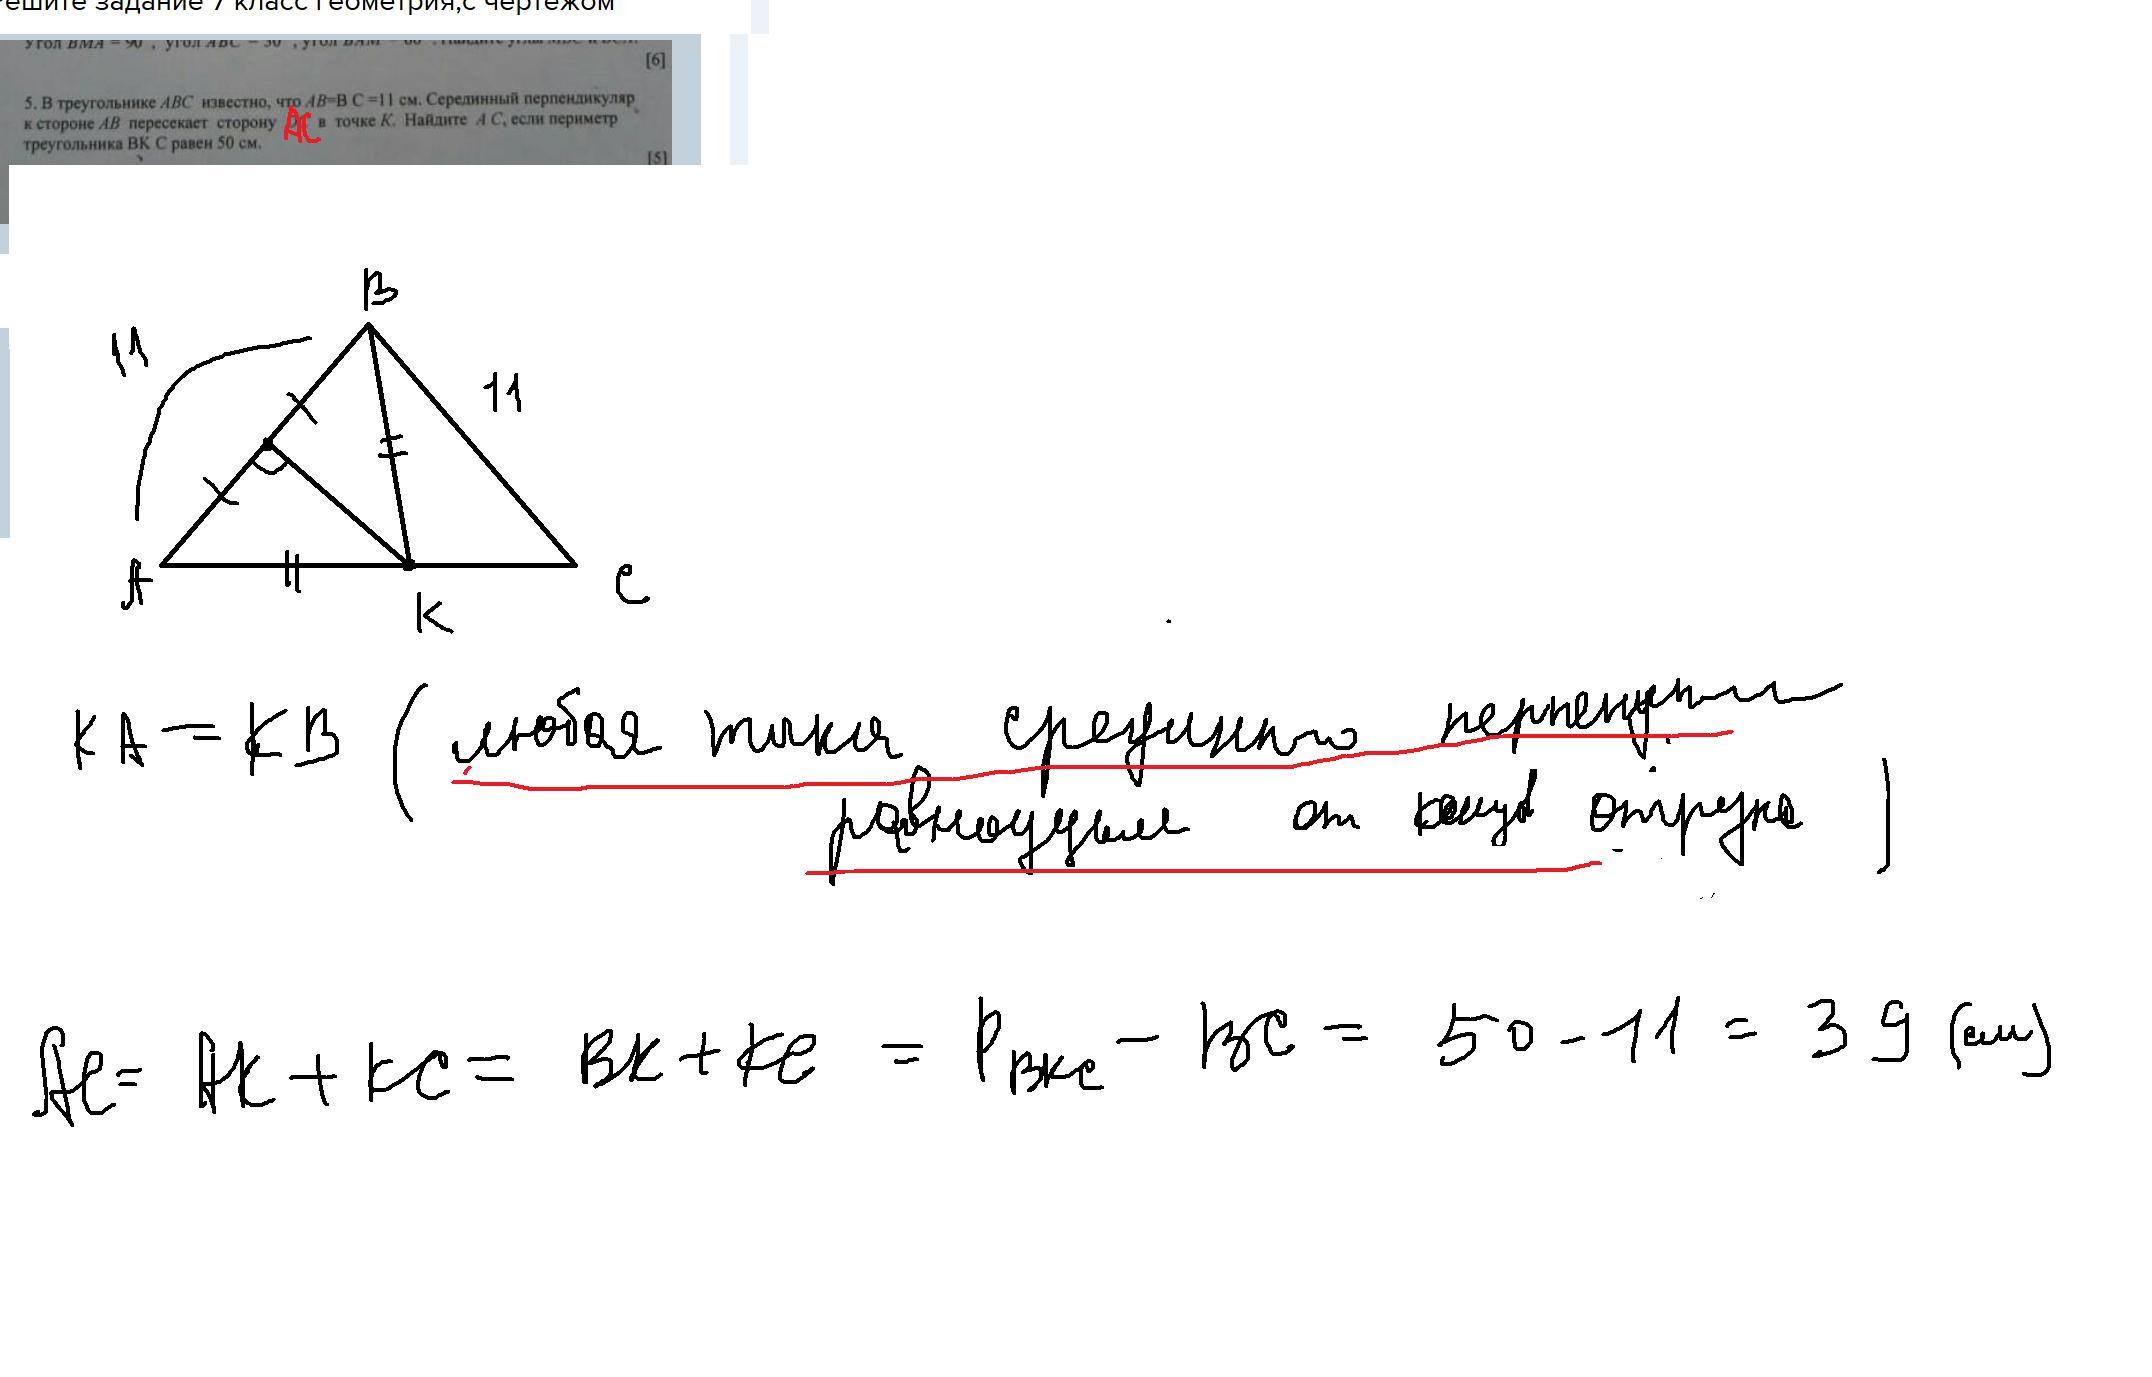 ешите задание 7 класс геометрия,с чертежом
Угол BMA = 90°, угол ABC = 30°, угол BAM = 60°. Найдите углы
[6]
5. В треугольнике ABC известно, что AB=B C =11 см. Серединный перпендикуляр
к стороне AB пересекает сторону AC в точке K. Найдите A C, если периметр
треугольника BK C равен 50 см.
[5]
B
11
11
A
C
K
KA = KB (любая точка срединного перпендикуляра
равноудалена от концов отрезка)
AC = AK + KC = BK + KC = P BKC - BC = 50 - 11 = 39 (см)